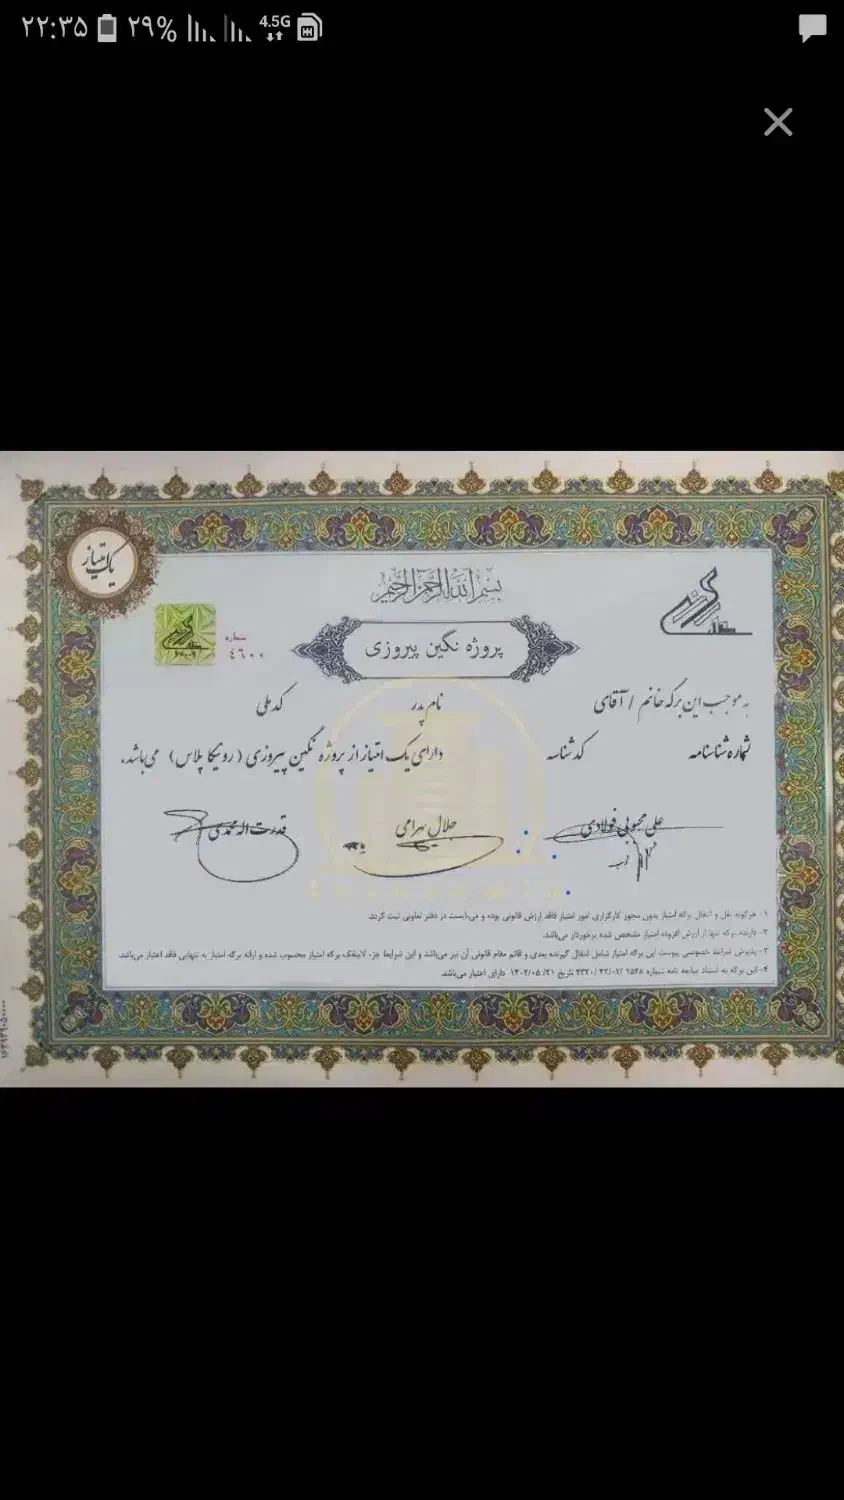 ۲۲:۳۵ ۲۹% 4.5G
یک امتیاز
بسم الله الرحمن الرحیم
شماره
۴۶۰۰
پروژه نگین پیروزی
به موجب این برگه خانم / آقای نام پدر کد ملی
شماره شناسنامه کد شناسه دارای یک امتیاز از پروژه نگین پیروزی (رونیکا پلاس) می‌باشد.
علی محبوبی فولادی جلال بهرامی قدرت اله محمدی
۱- هرگونه نقل و انتقال برگه امتیاز بدون مجوز کارگزاری امور امتیاز فاقد ارزش قانونی بوده و می‌بایست در دفتر تعاونی ثبت گردد.
۲- دارنده برگه تنها از ارزش افزوده امتیاز مشخص شده برخوردار می‌باشد.
۳- پذیرش شرایط خصوصی پیوست این برگه امتیاز شامل انتقال گیرنده بعدی و قائم مقام قانونی آن نیز می‌باشد و این شرایط جزء لاینفک برگه امتیاز محسوب شده و ارائه برگه امتیاز به تنهایی فاقد اعتبار می‌باشد.
۴- این برگه به استناد مبایعه نامه شماره ۲۵۲۸ /۴۲/۰۲ /۴۳۲۰ تاریخ ۲۱/ ۱۴۰۲/۰۵ دارای اعتبار می‌باشد.